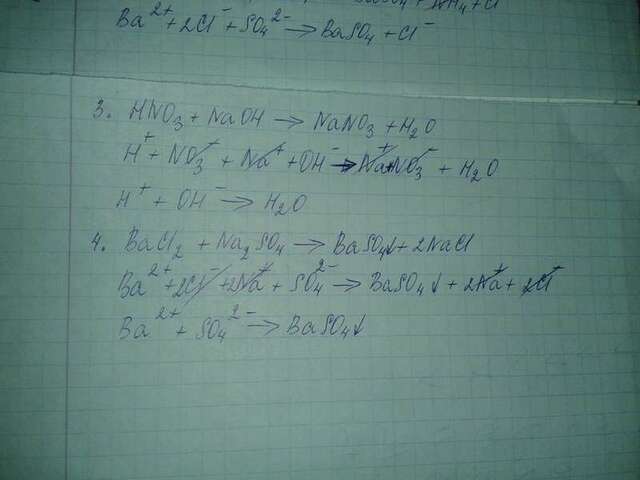 BaSO₄ + NH₄ + Cl
Ba²⁺ + 2Cl⁻ + SO₄²⁻ → BaSO₄ + Cl⁻
3. HNO₃ + NaOH → NaNO₃ + H₂O
H⁺ + NO₃⁻ + Na⁺ + OH⁻ → Na⁺ + NO₃⁻ + H₂O
H⁺ + OH⁻ → H₂O
4. BaCl₂ + Na₂SO₄ → BaSO₄↓ + 2NaCl
Ba²⁺ + 2Cl⁻ + 2Na⁺ + SO₄²⁻ → BaSO₄↓ + 2Na⁺ + 2Cl⁻
Ba²⁺ + SO₄²⁻ → BaSO₄↓